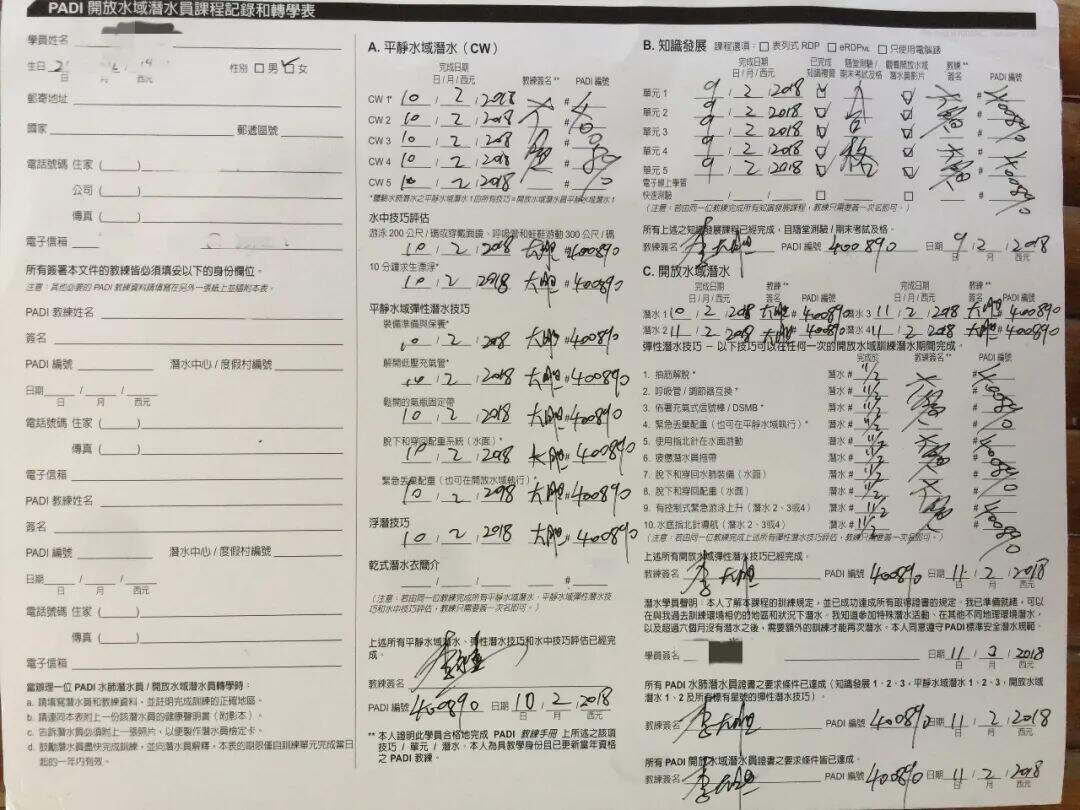 PADI 開放水域潛水員課程記錄和轉學表
學員姓名
生日 日 月 西元 性別 □ 男 ☑ 女
郵寄地址
國家 郵遞區號
電話號碼 住家 ( )
公司 ( )
傳真 ( )
電子信箱
所有簽署本文件的教練皆必須填妥以下的身份欄位。
注意:其他必要的 PADI 教練資料請填寫在另外一張紙上並隨附本表。
PADI 教練姓名
簽名
PADI 編號 潛水中心 / 度假村編號
日期 / /
日 月 西元
電話號碼 住家 ( )
傳真 ( )
電子信箱
PADI 教練姓名
簽名
PADI 編號 潛水中心 / 度假村編號
日期 / /
日 月 西元
電話號碼 住家 ( )
傳真 ( )
電子信箱
當辦理一位 PADI 水肺潛水員 / 開放水域潛水員轉學時:
a. 請填寫潛水員和教練資料,並註明完成訓練的正確地區。
b. 請連同本表附上一份該潛水員的健康聲明書(附影本)。
c. 告訴潛水員必須附上一張照片,以便製作潛水員檢定卡。
d. 鼓勵潛水員盡快完成訓練,並向潛水員解釋,本表的期限僅自訓練單元完成當日
起的一年內有效。
A. 平靜水域潛水(CW)
完成日期
日 / 月 / 西元 教練簽名 ** PADI 編號
CW 1* 10 / 2 / 2018 #
CW 2 10 / 2 / 2018 #
CW 3 10 / 2 / 2018 #
CW 4 10 / 2 / 2018 #
CW 5 10 / 2 / 2018 #
*體驗水肺潛水之平靜水域潛水 1由所有技巧=開放水域潛水員平靜水域潛水 1
水中技巧評估
游泳 200 公尺 / 碼或穿戴面鏡、呼吸管和蛙鞋游動 300 公尺 / 碼
10 / 2 / 2018 大胆 #400890
10 分鐘求生漂浮*
10 / 2 / 2018 大胆 #400890
平靜水域彈性潛水技巧
裝備準備與保養*
10 / 2 / 2018 大胆 #400890
解開低壓充氣管*
10 / 2 / 2018 大胆 #400890
鬆開的氣瓶固定帶
10 / 2 / 2018 大胆 #400890
脫下和穿回配重系統(水面)*
10 / 2 / 2018 大胆 #400890
緊急丟棄配重(也可在開放水域執行)*
10 / 2 / 2018 大胆 #400890
浮潛技巧
10 / 2 / 2018 大胆 #400890
乾式潛水衣簡介
/ / #
(注意:若由同一位教練完成所有平靜水域潛水、平靜水域彈性潛水技
巧和水中技巧評估,教練只需要簽一次名即可。)
上述所有平靜水域潛水、彈性潛水技巧和水中技巧評估已經完
成。
教練簽名
PADI 編號 400890 日期 10 / 2 / 2018
日 月 西元
** 本人證明此學員合格地完成 PADI 教練手冊 上所述之該項
技巧 / 單元 / 潛水。本人為具教學身份且已更新當年資格
之 PADI 教練。
B. 知識發展 課程選項:□ 表列式 RDP □ eRDPML □ 只使用電腦錶
完成日期 日 / 月 / 西元 已完成 知識複習 隨堂測驗 / 期末考試及格 觀看開放水域 潛水員影片 教練** 簽名 PADI 編號
單元 1 9 / 2 / 2018 ☑ ☑
單元 2 9 / 2 / 2018 ☑ ☑
單元 3 9 / 2 / 2018 ☑ ☑
單元 4 9 / 2 / 2018 ☑ ☑
單元 5 9 / 2 / 2018 ☑ ☑
電子線上學習
快速測驗 / / □ □
(注意:若由同一位教練完成所有知識發展課程,教練只需要簽一次名即可。)
所有上述之知識發展課程已經完成,且隨堂測驗 / 期末考試及格。
教練簽名 李大胆 PADI 編號 400890 日期 9 / 2 / 2018
日 月 西元
C. 開放水域潛水
完成日期 日 / 月 / 西元 教練** 簽名 PADI 編號 完成日期 日 / 月 / 西元 教練** 簽名 PADI 編號
潛水 1 10 / 2 / 2018 大胆 #400890 潛水 3 11 / 2 / 2018 大胆 #400890
潛水 2 11 / 2 / 2018 大胆 #400890 潛水 4 11 / 2 / 2018 大胆 #400890
彈性潛水技巧 – 以下技巧可以在任何一次的開放水域訓練潛水期間完成。
完成於 教練簽名** PADI 編號
1. 抽筋解脫* 潛水 # 11/2
2. 呼吸管 / 調節器互換* 潛水 # 11/2
3. 佈署充氣式信號棒 / DSMB* 潛水 # 11/2
4. 緊急丟棄配重(也可在平靜水域執行)* 潛水 # 11/2
5. 使用指北針在水面游動 潛水 # 11/2
6. 疲憊潛水員拖帶 潛水 # 11/2
7. 脫下和穿回水肺裝備(水面) 潛水 # 11/2
8. 脫下和穿回配重(水面) 潛水 # 11/2
9. 有控制式緊急游泳上升(潛水 2、3或4) 潛水 # 11/2
10. 水底指北針導航(潛水 2、3或4) 潛水 # 11/2
(注意:若由同一位教練完成上述所有彈性潛水技巧評估,教練只需要簽一次名即可。)
上述所有開放水域彈性潛水技巧已經完成。
教練簽名 李大胆 PADI 編號 400890 日期 11 / 2 / 2018
日 月 西元
潛水學員聲明:本人了解本課程的訓練規定,並已成功達成所有取得證書的規定。我已準備就緒,可以
在與我過去訓練環境相仿的地區和狀況下潛水。我知道參加特殊潛水活動、在其他不同地理環境潛水,
以及超過六個月沒有潛水之後,需要額外的訓練才能再次潛水。本人同意遵守 PADI 標準安全潛水規範。
學員簽名 日期 11 / 2 / 2018
日 月 西元
所有 PADI 水肺潛水員證書之要求條件已達成(知識發展 1、2、3,平靜水域潛水 1、2、3,開放水域
潛水 1、2 及所有標有星號的彈性潛水技巧)。
教練簽名 李大胆 PADI 編號 400890 日期 11 / 2 / 2018
日 月 西元
所有 PADI 開放水域潛水員證書之要求條件皆已達成。
教練簽名 李大胆 PADI 編號 400890 日期 11 / 2 / 2018
日 月 西元